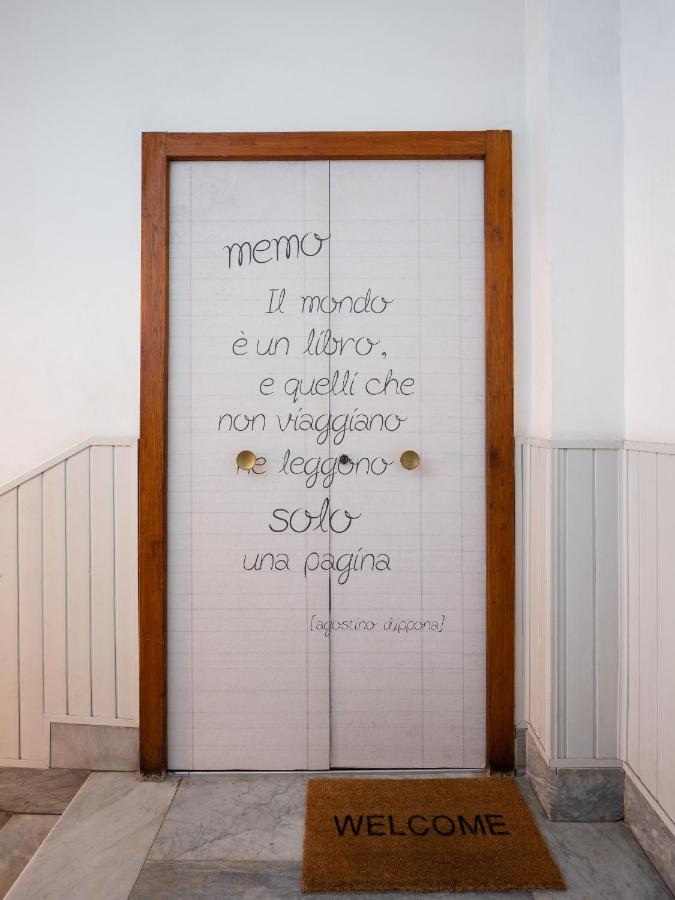 memo
Il mondo
è un libro,
e quelli che
non viaggiano
ne leggono
solo
una pagina
[agostino d'ippona]
WELCOME